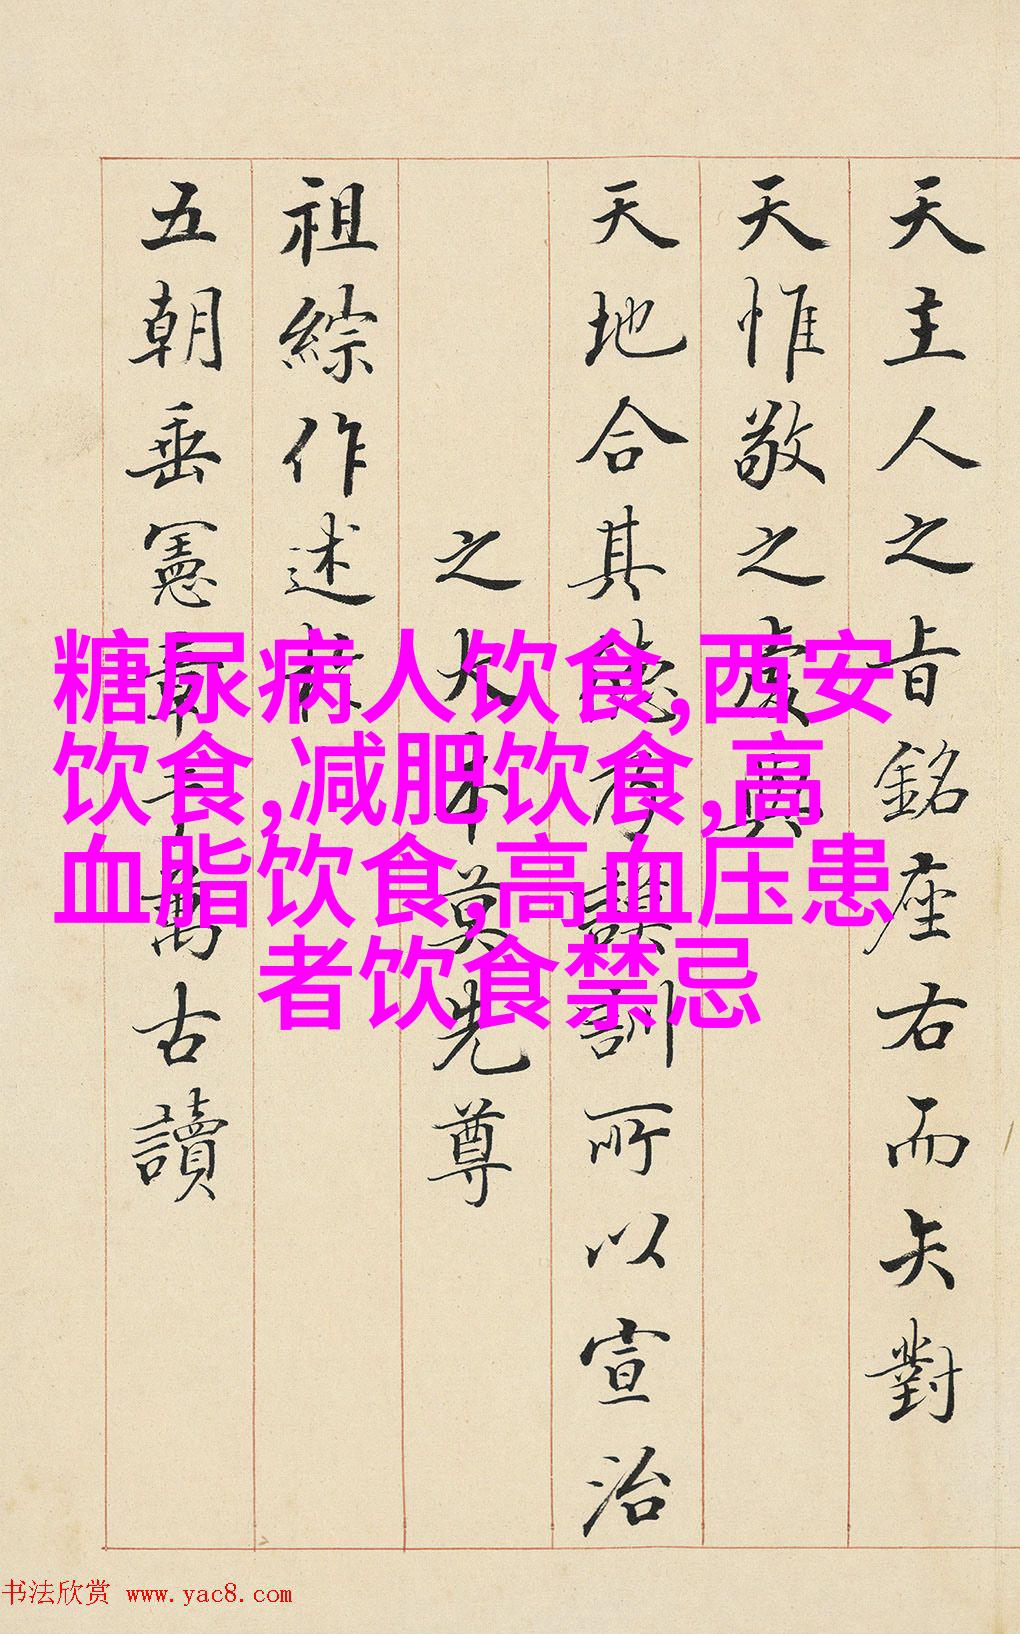 天主人之旨銘座右而矢對
天惟敬之處與
天地合其德考謨訓所以宣治
之大本莫先尊
祖綜作述
五朝垂憲章千萬古讀
糖尿病人饮食,西安
饮食,减肥饮食,高
血脂饮食,高血压患
者饮食禁忌
书法欣赏 www.yac8.com